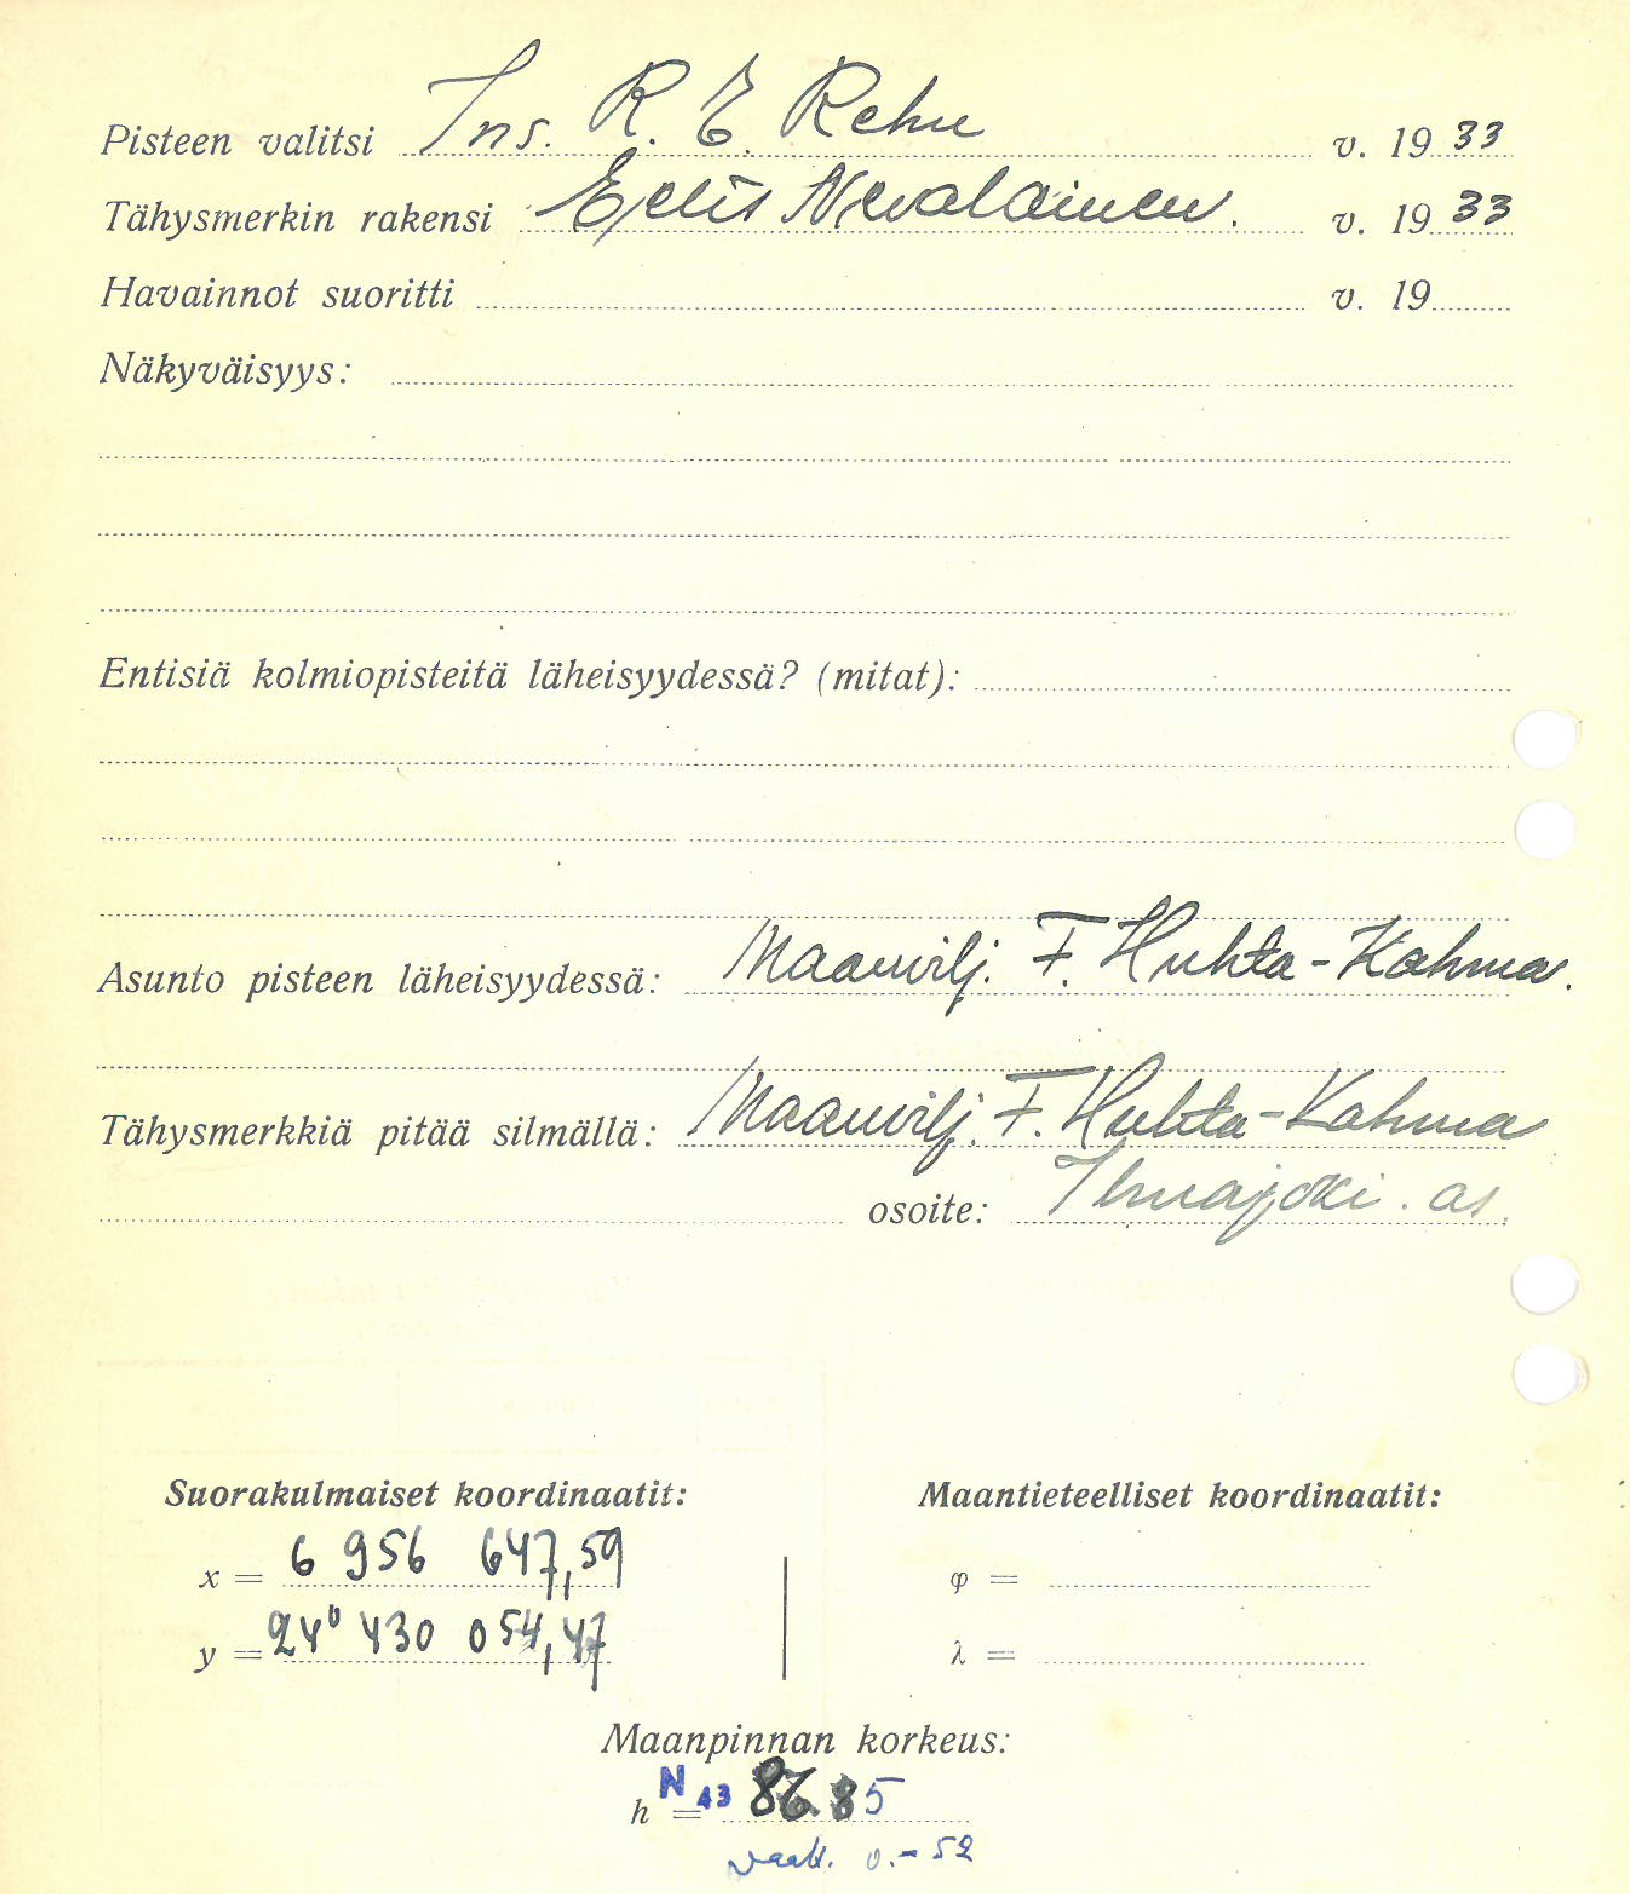 Pisteen valitsi Ins. R. E. Rehn v. 19 33
Tähysmerkin rakensi Eelis Nevalainen. v. 19 33
Havainnot suoritti v. 19
Näkyväisyys:
Entisiä kolmiopisteitä läheisyydessä? (mitat):
Asunto pisteen läheisyydessä: Maanvilj. F. Huhta-Kahma.
Tähysmerkkiä pitää silmällä: Maanvilj. F. Huhta-Kahma
osoite: Ilmajoki. as.
Suorakulmaiset koordinaatit: Maantieteelliset koordinaatit:
x = 6 956 647,59 φ =
y = 24⁰ 430 054,47 λ =
Maanpinnan korkeus:
h N 43 =
v. - 52